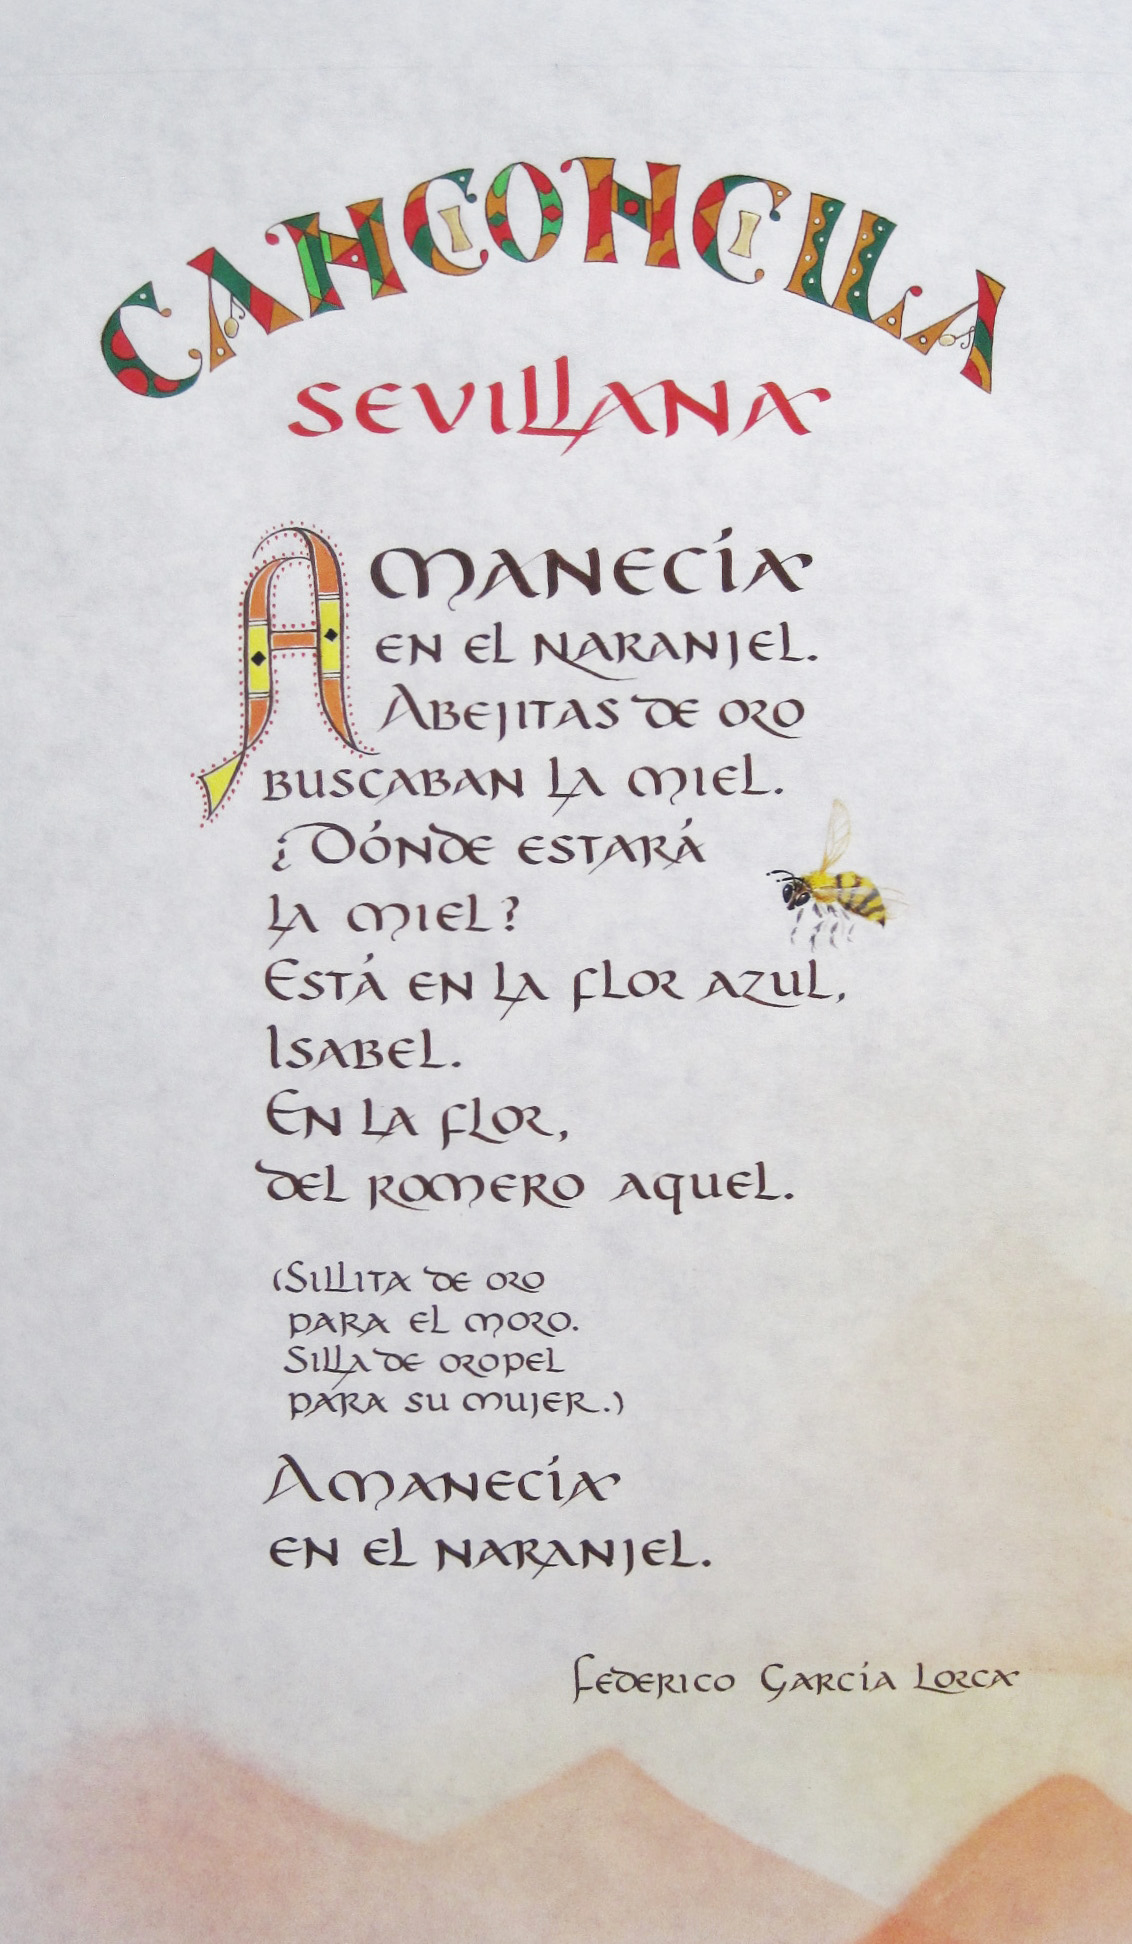 CANCIONCILLA
SEVILLANA
AMANECÍA
EN EL NARANJEL.
ABEJITAS DE ORO
BUSCABAN LA MIEL.
¿DÓNDE ESTARÁ
LA MIEL?
ESTÁ EN LA FLOR AZUL,
ISABEL.
EN LA FLOR,
DEL ROMERO AQUEL.
(SILLITA DE ORO
PARA EL MORO.
SILLA DE OROPEL
PARA SU MUJER.)
AMANECÍA
EN EL NARANJEL.
FEDERICO GARCÍA LORCA